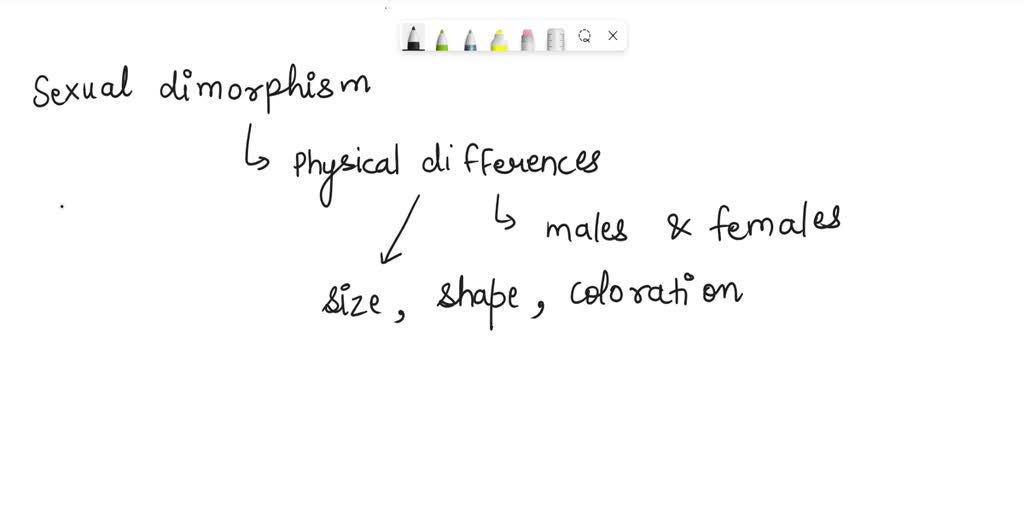 Sexual dimorphism
↳ Physical differences
↳ males & females
size, shape, coloration